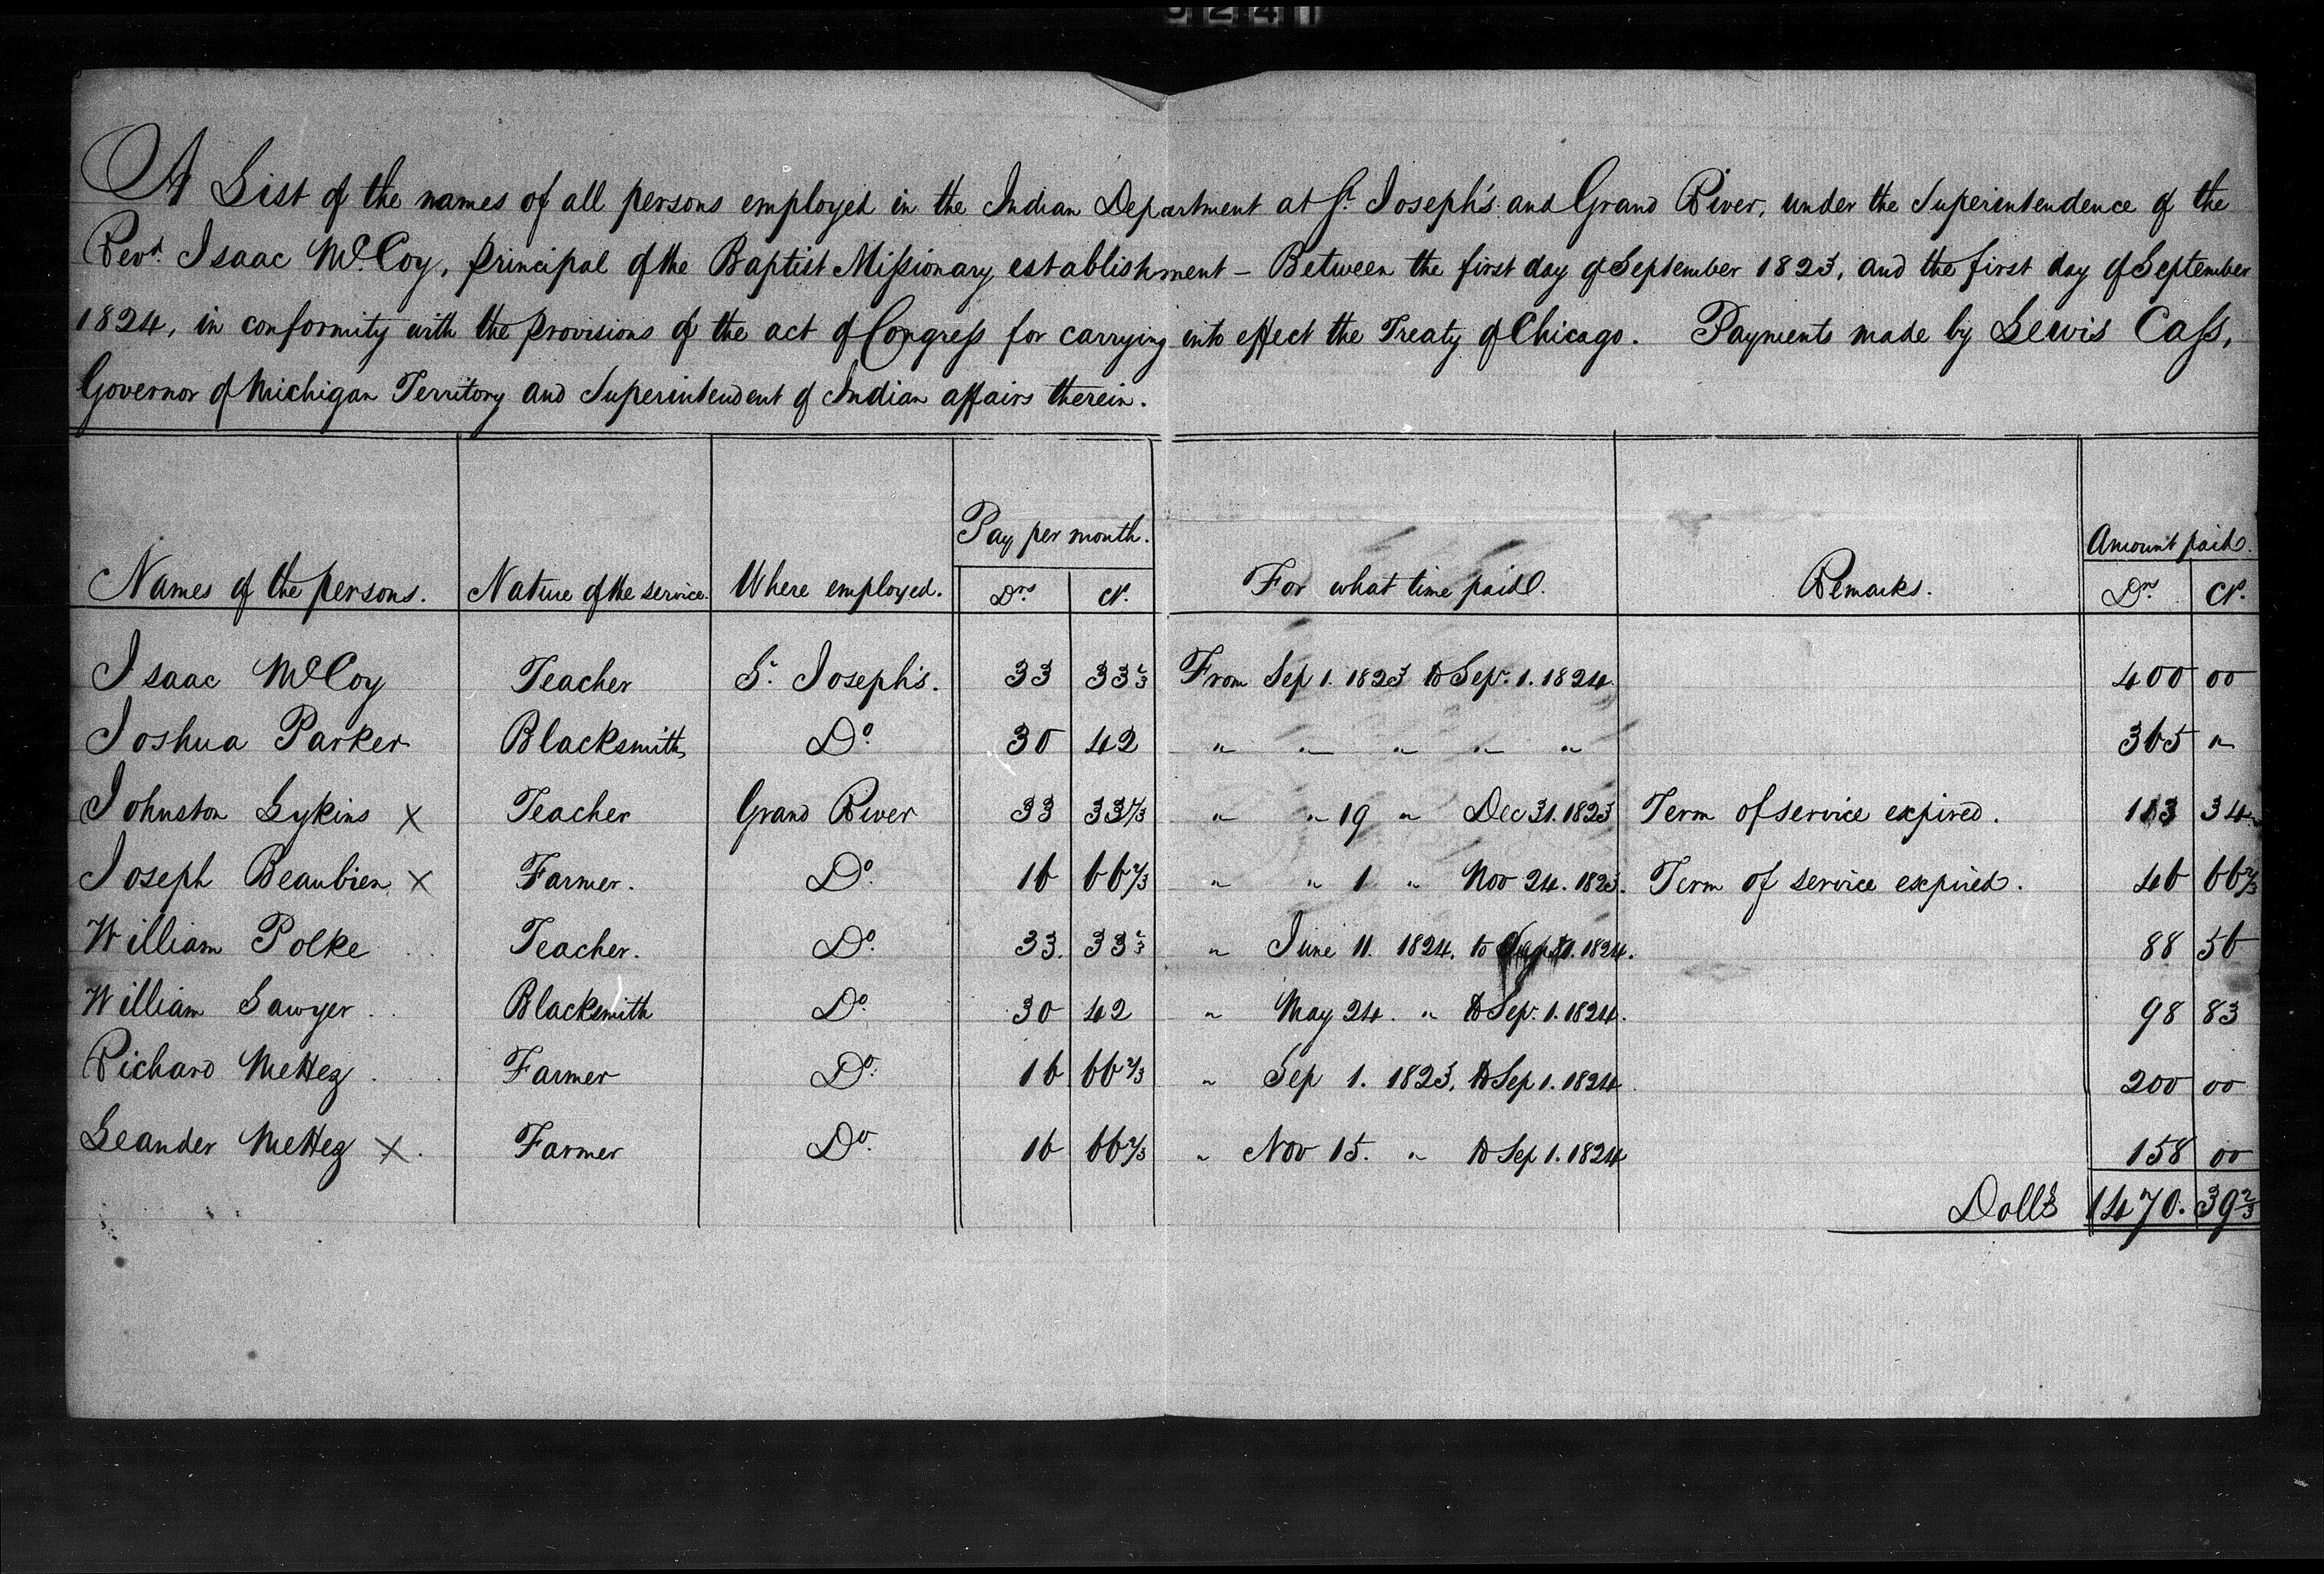 A List of the names of all persons employed in the Indian Department at St. Joseph's and Grand River, under the Superintendence of the
Revd. Isaac McCoy, principal of the Baptist Missionary establishment – Between the first day of September 1823, and the first day of September
1824, in conformity with the provisions of the act of Congress for carrying into effect the Treaty of Chicago. Payments made by Lewis Cass,
Governor of Michigan Territory and Superintendent of Indian affairs therein.
Names of the persons. Nature of the service. Where employed. Pay per month. Drs Ct. For what time paid. Remarks. Amount paid. Drs. Ct.
Isaac McCoy Teacher St. Joseph's. 33 33 1/3 From Sep 1. 1823 to Sep. 1. 1824 400 00
Joshua Parker Blacksmith Do. 30 42 " " " " " 365 "
Johnston Lykins X Teacher Grand River 33 33 1/3 " " 19 " Dec 31. 1823 Term of service expired. 113 34
Joseph Beaubien X Farmer. Do. 16 66 2/3 " " 1 " Nov 24. 1823. Term of service expired. 46 66 2/3
William Polke Teacher. Do. 33. 33 1/3 " June 11. 1824. to 1. 1824. 88 56
William Sawyer Blacksmith Do. 30 42 " May 24. " to Sep. 1. 1824. 98 83
Richard Mettez Farmer Do. 16 66 2/3 " Sep 1. 1823, to Sep 1. 1824 200 00
Leander Mettez X. Farmer Do. 16 66 2/3 " Nov 15. " to Sep 1. 1824 158 00
Dolls 1470. 39 2/3